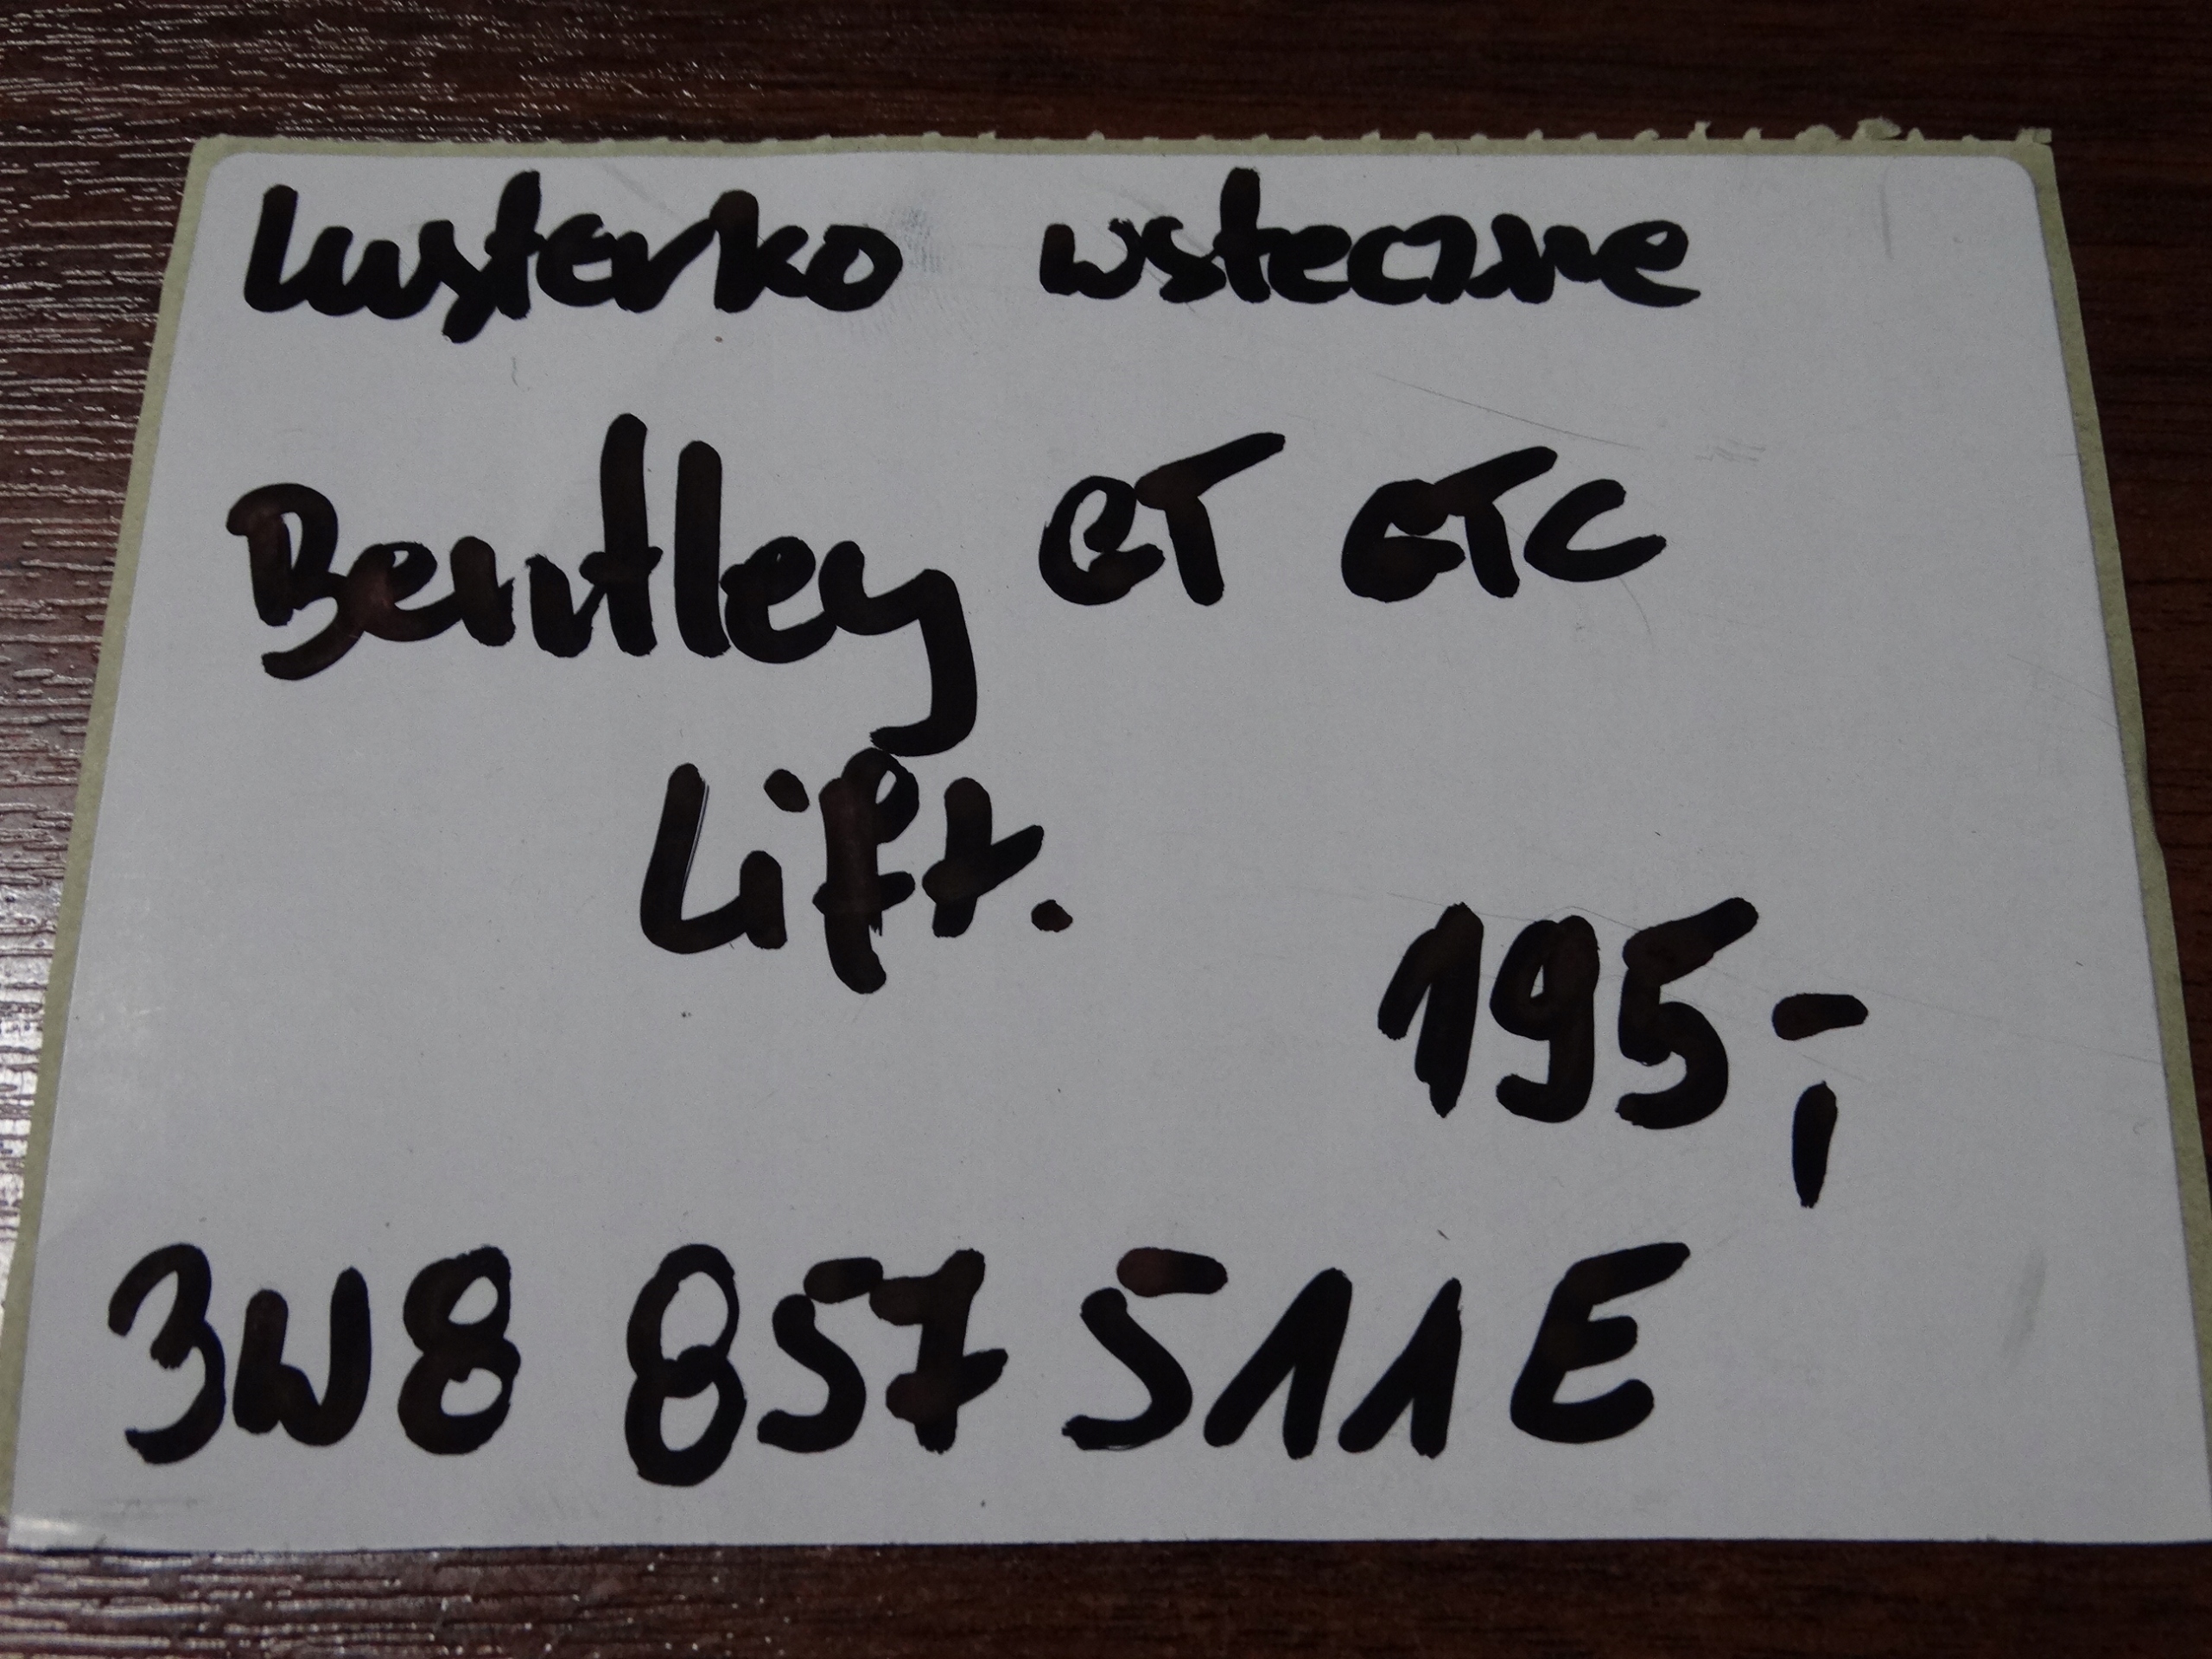 Lusterko wsteczne
Bentley GT GTC
Lift.
195,-
3W8 857 511E